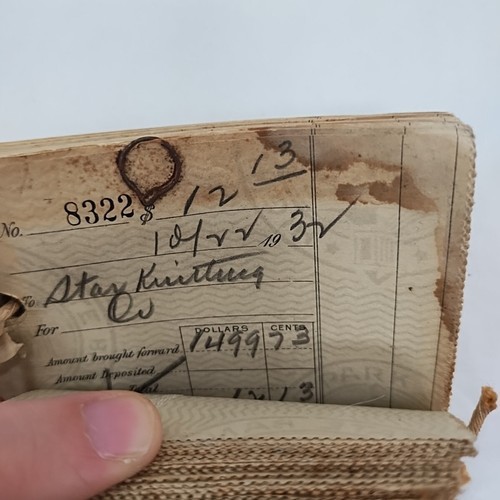 No. 8322 $ 12 13
10/22 1932
To Star Knitting
Co
For
DOLLARS CENTS
Amount brought forward 1499 73
Amount Deposited
Total 12 13